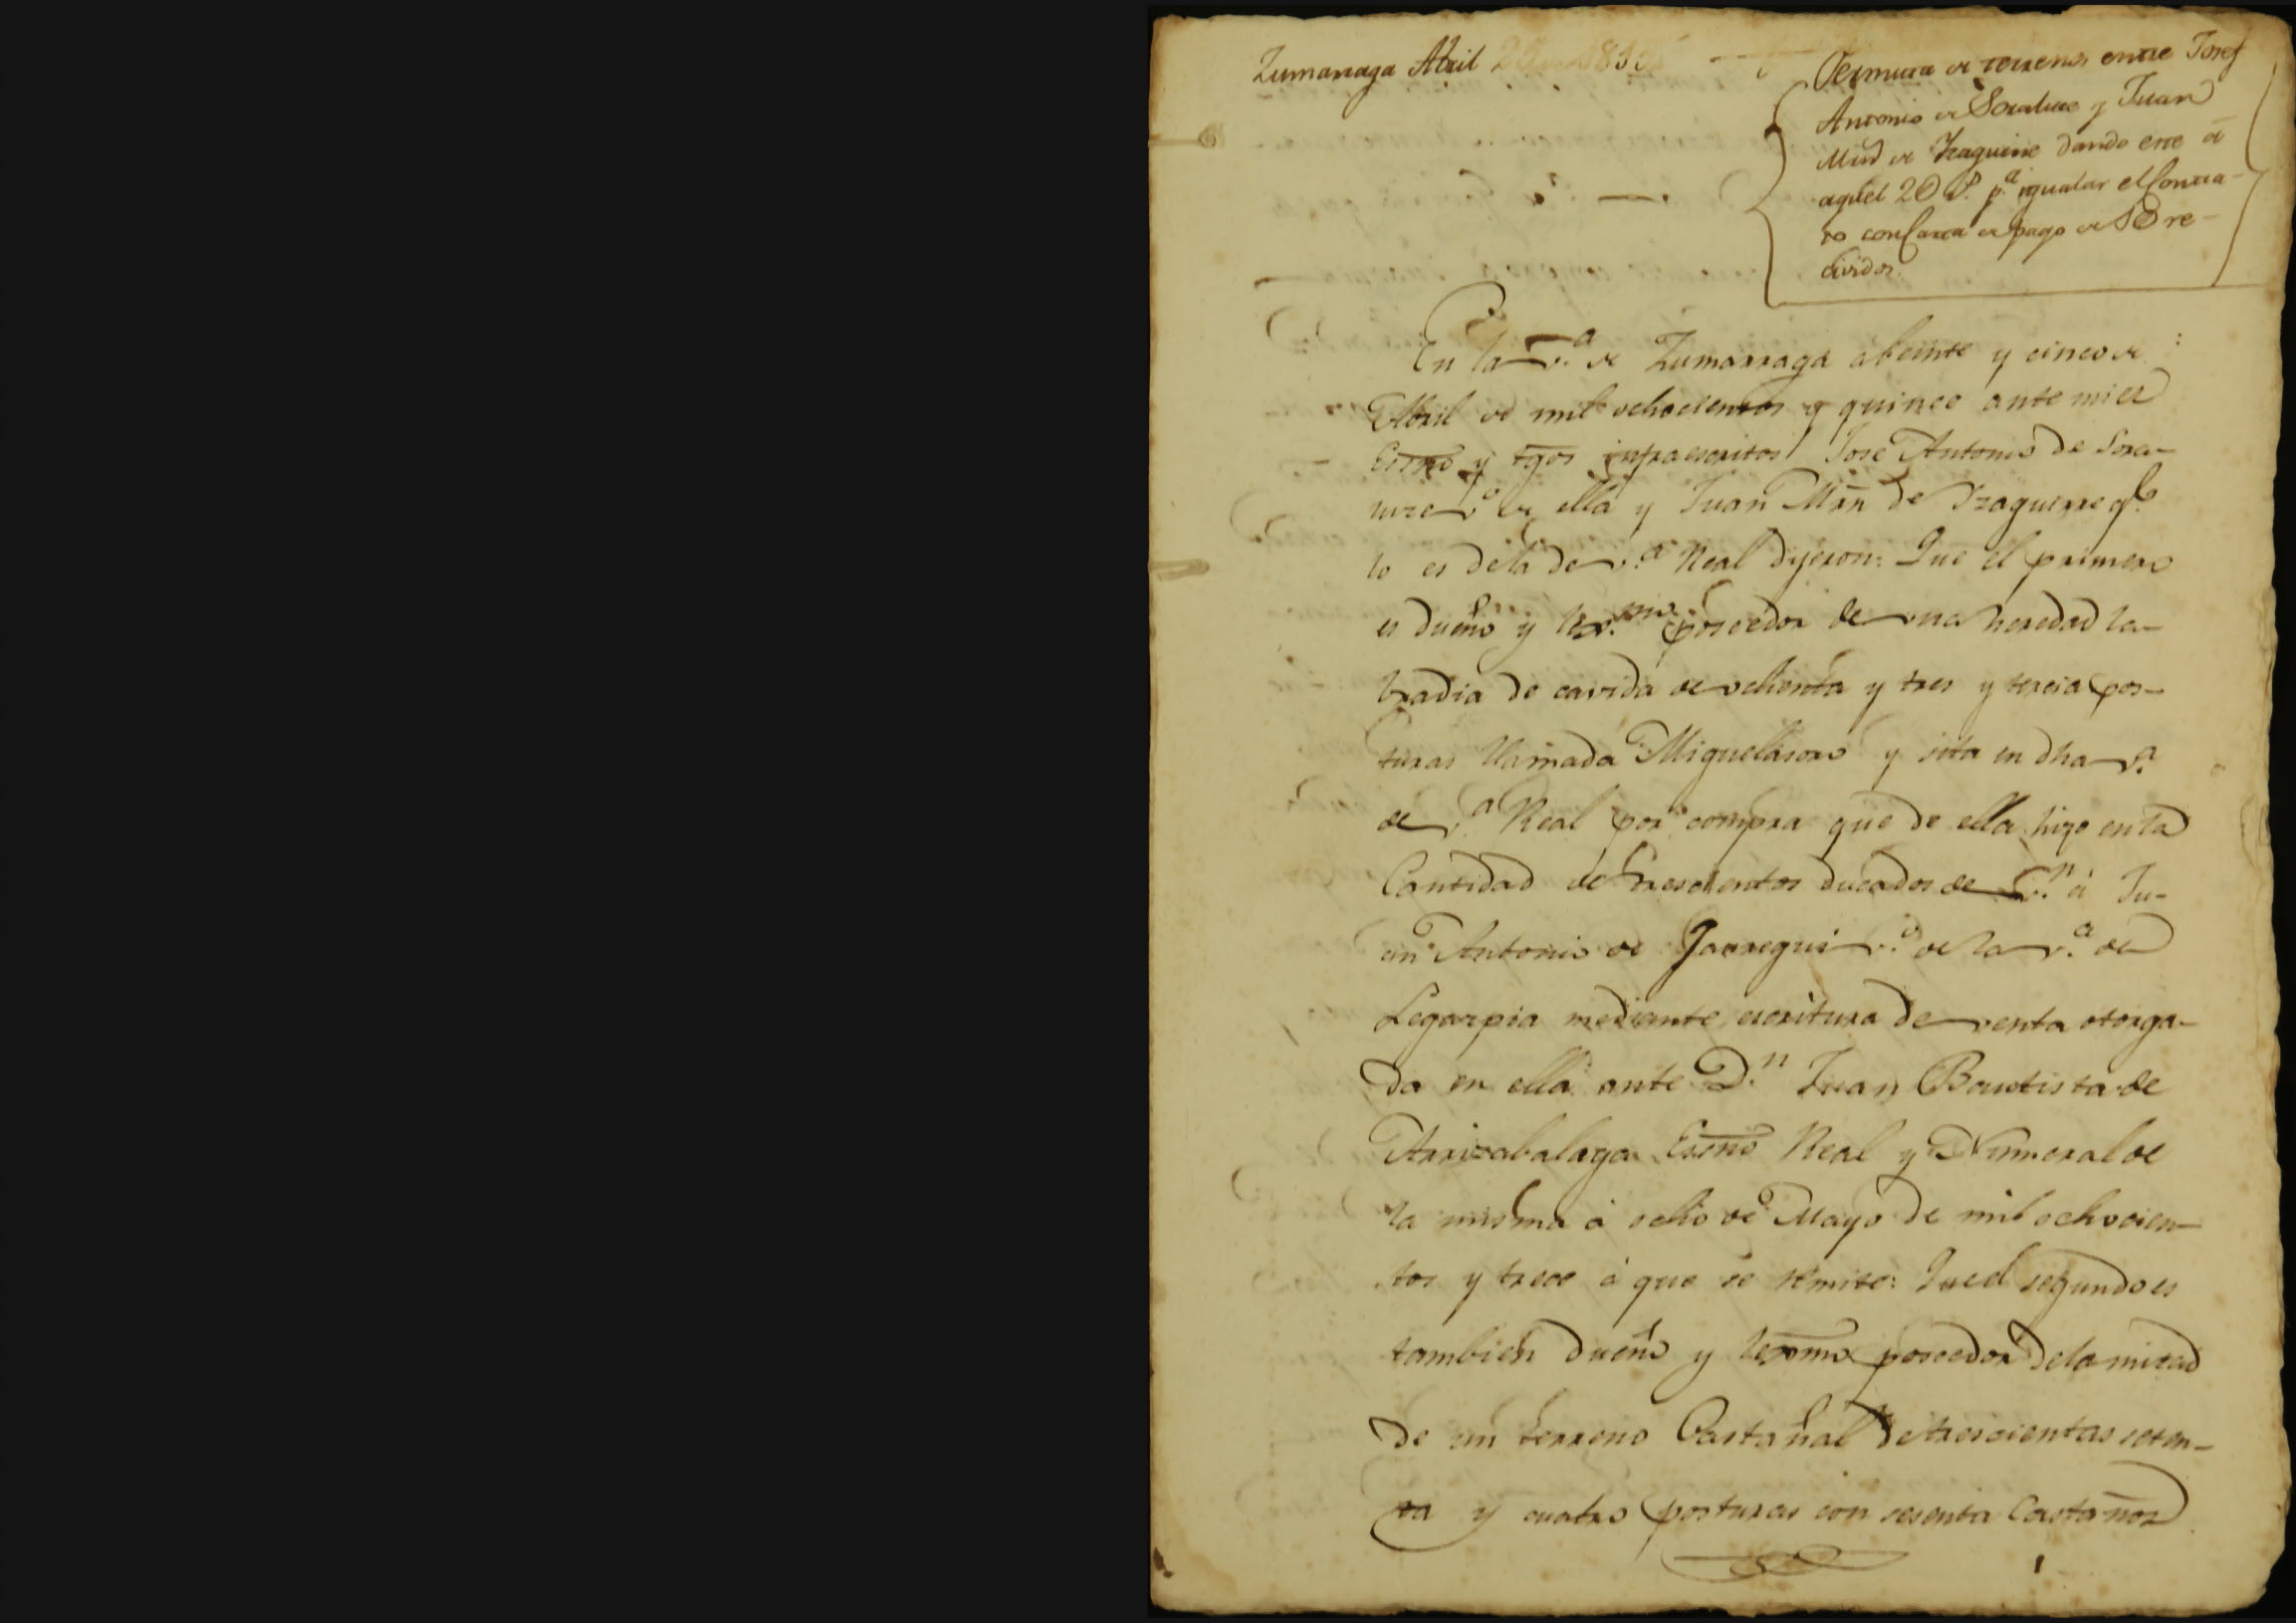 Zumarraga Abril 25 1815
Permuta de terrenos entre Josef
Antonio de Soraluce y Juan
Mrn de Yzaguirre dando este á
aquel 20 ps. pa. igualar el Contra-
to con Carta de pago de re-
cividos.
En la v.a de Zumarraga á beinte y cinco de
Abril de mil ochocientos y quince ante mi el
Essno y tgos infraescritos Jose Antonio de Sora-
luze v.o de ella y Juan Mrn de Yzaguirre qe.
lo es de la de v.a Real dijeron: Que el primero
es dueño y lex.mo poseedor de una heredad la-
bradia de cavida de ochenta y tres y tercia pos-
turas llamada Miguelasoro y sita en dha v.a
de v.a Real por compra que de ella hizo en la
Cantidad de trescientos ducados de v.n á Ju-
an Antonio de Jauregui v.o de la v.a de
Legarpia mediante escritura de venta otorga-
da en ella ante D.n Juan Bautista de
Arrizabalaga Essno Real y Numeral de
la misma á ocho de Mayo de mil ochocien-
tos y trece á que se remite: Que el segundo es
tambien dueño y lexmo poseedor de la mitad
de un terreno Castañal de trescientas seten-
ta y cuatro posturas con sesenta Castaños